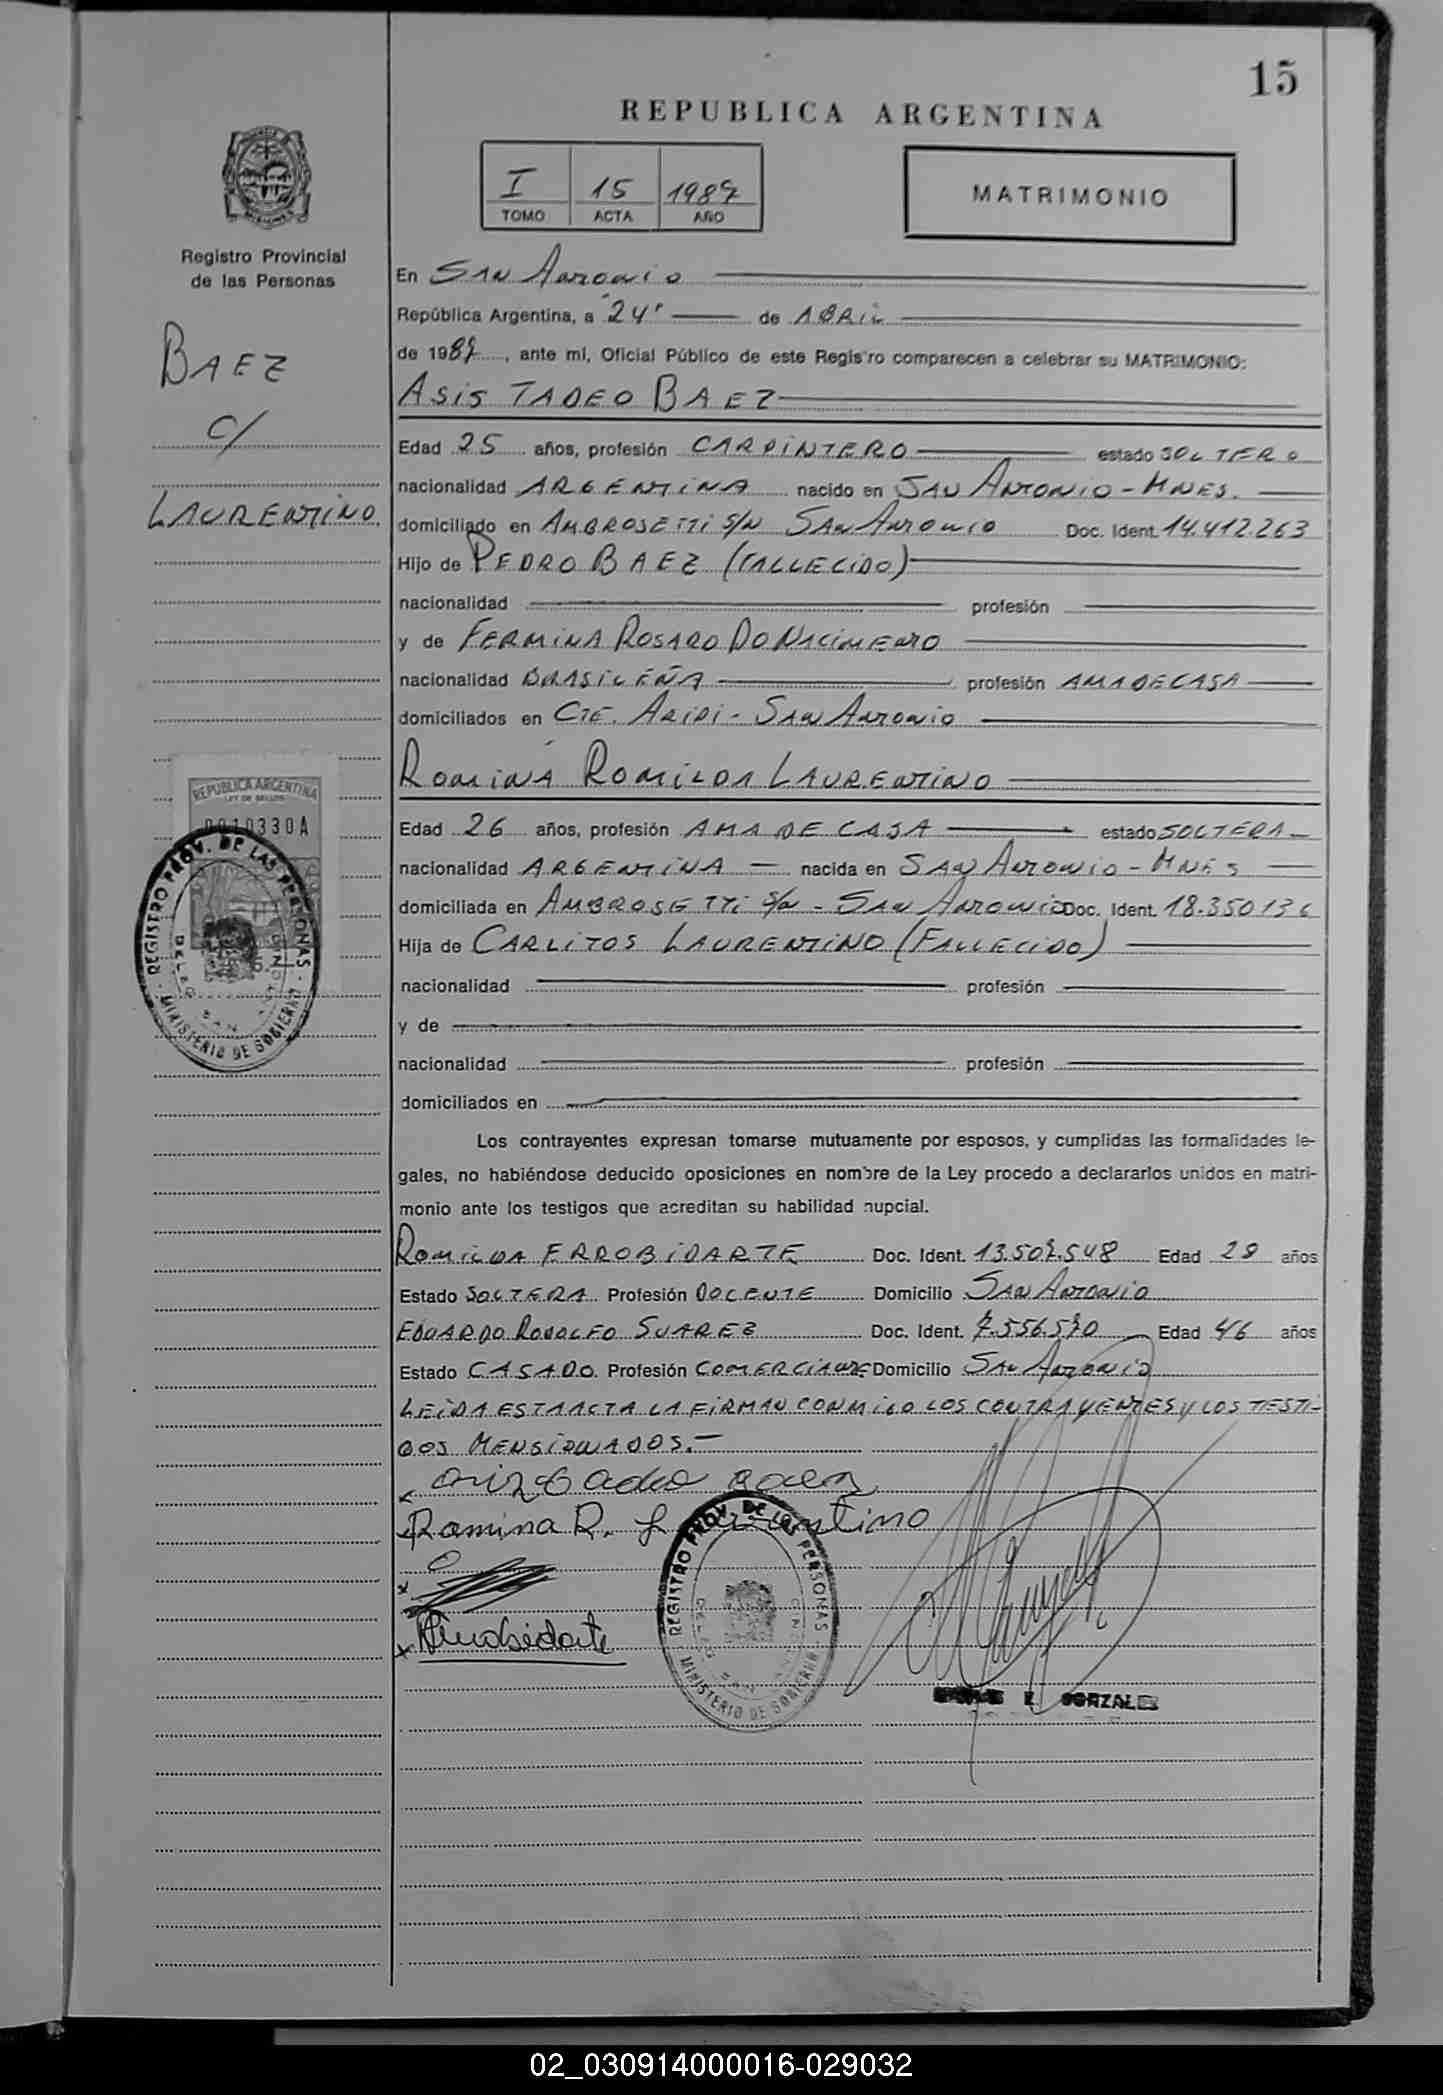 15
REPUBLICA ARGENTINA
I 15 1987
TOMO ACTA AÑO
MATRIMONIO
Registro Provincial
de las Personas
BAEZ
c/
LAURENTINO.
REPUBLICA ARGENTINA
LEY DE SELLOS
0010330A
REGISTRO PROV. DE LAS PERSONAS
MINISTERIO DE GOBIERNO
En SAN ANTONIO
República Argentina, a "24" de ABRIL
de 1987, ante mí, Oficial Público de este Registro comparecen a celebrar su MATRIMONIO:
ASIS TADEO BAEZ
Edad 25 años, profesión CARPINTERO estado SOLTERO
nacionalidad ARGENTINA nacido en SAN ANTONIO - MNES.
domiciliado en AMBROSETTI S/N SAN ANTONIO Doc. Ident. 14.412.263
Hijo de PEDRO BAEZ (FALLECIDO)
nacionalidad profesión
y de FERMINA ROSARO DO NACIMENTO
nacionalidad BRASILEÑA profesión AMA DE CASA
domiciliados en CTE. ARIDI - SAN ANTONIO
ROMINA ROMILDA LAURENTINO
Edad 26 años, profesión AMA DE CASA estado SOLTERA
nacionalidad ARGENTINA nacida en SAN ANTONIO - MNES
domiciliada en AMBROSETTI S/N - SAN ANTONIO Doc. Ident. 18.350.136
Hija de CARLITOS LAURENTINO (FALLECIDO)
nacionalidad profesión
y de
nacionalidad profesión
domiciliados en
Los contrayentes expresan tomarse mutuamente por esposos, y cumplidas las formalidades le-
gales, no habiéndose deducido oposiciones en nombre de la Ley procedo a declararlos unidos en matri-
monio ante los testigos que acreditan su habilidad nupcial.
ROMILDA ERROBIDARTE Doc. Ident. 13.507.548 Edad 28 años
Estado SOLTERA Profesión DOCENTE Domicilio SAN ANTONIO
EDUARDO RODOLFO SUAREZ Doc. Ident. 7.556.570 Edad 46 años
Estado CASADO. Profesión COMERCIANTE Domicilio SAN ANTONIO
LEIDA ESTA ACTA LA FIRMAN CONMIGO LOS CONTRAYENTES Y LOS TESTI-
GOS MENSIONADOS.-
asis tadeo baez
Romina R. Laurentino
Errobidarte
REGISTRO PROV. DE LAS PERSONAS
MINISTERIO DE GOBIERNO
E. GONZALEZ
02_030914000016-029032